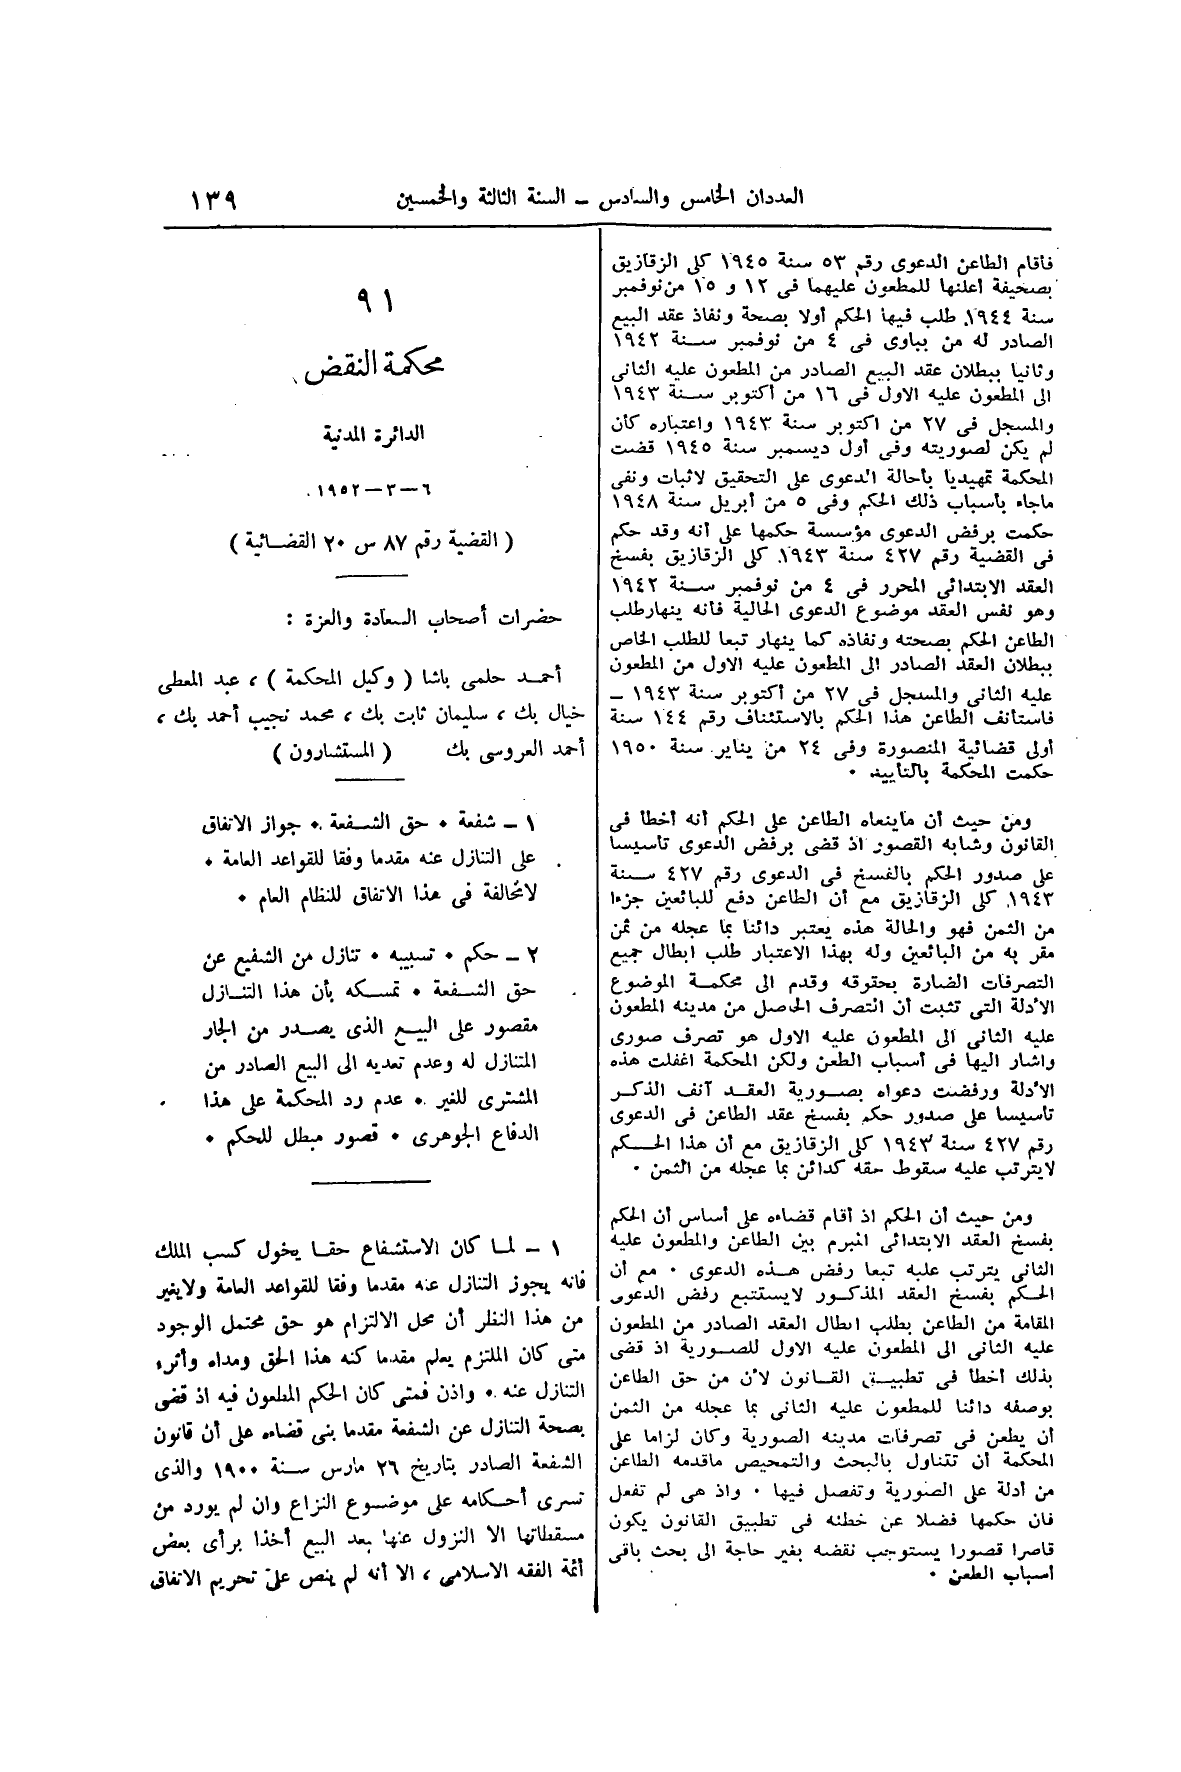 العددان الخامس والسادس – السنة الثالثة والخمسين
١٣٩
فأقام الطاعن الدعوى رقم ٥٣ سنة ١٩٤٥ كلى الزقازيق
بصحيفة أعلنها للمطعون عليهما فى ١٢ و ١٥ من نوفمبر
سنة ١٩٤٤ طلب فيها الحكم أولا بصحة ونفاذ عقد البيع
الصادر له من بباوى فى ٤ من نوفمبر سنة ١٩٤٢
وثانيا ببطلان عقد البيع الصادر من المطعون عليه الثانى
الى المطعون عليه الاول فى ١٦ من أكتوبر سنة ١٩٤٣
والمسجل فى ٢٧ من اكتوبر سنة ١٩٤٣ واعتباره كأن
لم يكن لصوريته وفى أول ديسمبر سنة ١٩٤٥ قضت
المحكمة تمهيديا بأحالة الدعوى على التحقيق لاثبات ونفى
ماجاء بأسباب ذلك الحكم وفى ٥ من أبريل سنة ١٩٤٨
حكمت برفض الدعوى مؤسسة حكمها على أنه وقد حكم
فى القضية رقم ٤٢٧ سنة ١٩٤٣ كلى الزقازيق بفسخ
العقد الابتدائى المحرر فى ٤ من نوفمبر سنة ١٩٤٢
وهو نفس العقد موضوع الدعوى الحالية فانه ينهار طلب
الطاعن الحكم بصحته ونفاذه كما ينهار تبعا للطلب الخاص
ببطلان العقد الصادر الى المطعون عليه الاول من المطعون
عليه الثانى والمسجل فى ٢٧ من أكتوبر سنة ١٩٤٣ –
فاستأنف الطاعن هذا الحكم بالاستئناف رقم ١٤٤ سنة
أولى قضائية المنصورة وفى ٢٤ من يناير سنة ١٩٥٠
حكمت المحكمة بالتأييد ٠
ومن حيث أن ماينعاه الطاعن على الحكم أنه أخطأ فى
القانون وشابه القصور اذ قضى برفض الدعوى تأسيسا
على صدور الحكم بالفسخ فى الدعوى رقم ٤٢٧ سنة
١٩٤٣ كلى الزقازيق مع أن الطاعن دفع للبائعين جزءا
من الثمن فهو والحالة هذه يعتبر دائنا بما عجله من ثمن
مقر به من البائعين وله بهذا الاعتبار طلب ابطال جميع
التصرفات الضارة بحقوقه وقدم الى محكمة الموضوع
الأدلة التى تثبت أن التصرف الحاصل من مدينه المطعون
عليه الثانى الى المطعون عليه الاول هو تصرف صورى
واشار اليها فى أسباب الطعن ولكن المحكمة اغفلت هذه
الادلة ورفضت دعواه بصورية العقد آنف الذكر
تأسيسا على صدور حكم بفسخ عقد الطاعن فى الدعوى
رقم ٤٢٧ سنة ١٩٤٣ كلى الزقازيق مع أن هذا الحكم
لايترتب عليه سقوط حقه كدائن بما عجله من الثمن ٠
ومن حيث أن الحكم اذ أقام قضاءه على أساس أن الحكم
بفسخ العقد الابتدائى المبرم بين الطاعن والمطعون عليه
الثانى يترتب عليه تبعا رفض هذه الدعوى ٠ مع أن
الحكم بفسخ العقد المذكور لايستتبع رفض الدعوى
المقامة من الطاعن بطلب ابطال العقد الصادر من المطعون
عليه الثانى الى المطعون عليه الاول للصورية اذ قضى
بذلك أخطأ فى تطبيق القانون لأن من حق الطاعن
بوصفه دائنا للمطعون عليه الثانى بما عجله من الثمن
أن يطعن فى تصرفات مدينه الصورية وكان لزاما على
المحكمة أن تتناول بالبحث والتمحيص ماقدمه الطاعن
من أدلة على الصورية وتفصل فيها ٠ واذ هى لم تفعل
فان حكمها فضلا عن خطئه فى تطبيق القانون يكون
قاصرا قصورا يستوجب نقضه بغير حاجة الى بحث باقى
أسباب الطعن ٠
٩١
محكمة النقض
الدائرة المدنية
٦ – ٣ – ١٩٥٢
( القضية رقم ٨٧ س ٢٠ القضائية )
حضرات أصحاب السعادة والعزة :
أحمد حلمى باشا ( وكيل المحكمة ) ، عبد المعطى
خيال بك ، سليمان ثابت بك ، محمد نجيب أحمد بك ،
أحمد العروسى بك ( المستشارون )
١ – شفعة ٠ حق الشفعة ٠ جواز الاتفاق
على التنازل عنه مقدما وفقا للقواعد العامة ٠
لامخالفة فى هذا الاتفاق للنظام العام ٠
٢ – حكم ٠ تسبيبه ٠ تنازل من الشفيع عن
حق الشفعة ٠ تمسكه بأن هذا التنازل
مقصور على البيع الذى يصدر من الجار
المتنازل له وعدم تعديه الى البيع الصادر من
المشترى للغير ٠ عدم رد المحكمة على هذا
الدفاع الجوهرى ٠ قصور مبطل للحكم ٠
١ – لما كان الاستشفاع حقا يخول كسب الملك
فانه يجوز التنازل عنه مقدما وفقا للقواعد العامة ولايغير
من هذا النظر أن محل الالتزام هو حق محتمل الوجود
متى كان الملتزم يعلم مقدما كنه هذا الحق ومداه وأثره
التنازل عنه ٠ واذن فمتى كان الحكم المطعون فيه اذ قضى
بصحة التنازل عن الشفعة مقدما بنى قضاءه على أن قانون
الشفعة الصادر بتاريخ ٢٦ مارس سنة ١٩٠٠ والذى
تسرى أحكامه على موضوع النزاع وان لم يورد من
مسقطاتها الا النزول عنها بعد البيع أخذا برأى بعض
أئمة الفقه الاسلامى ، الا أنه لم ينص على تحريم الاتفاق